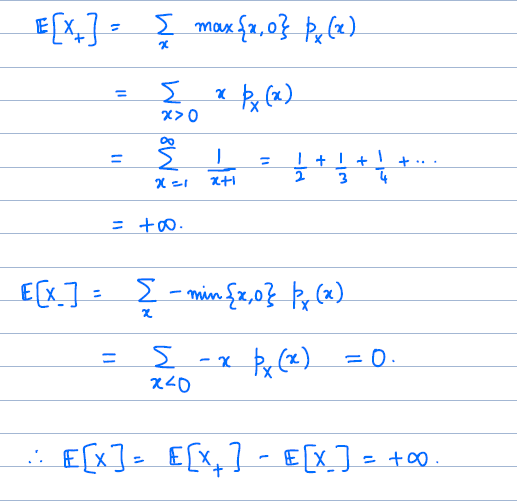 𝔼[X₊] = ∑ₓ max{x,0} pₓ(x)
= ∑_{x>0} x p_X(x)
= ∑_{x=1}^{∞} 1/(x+1) = 1/2 + 1/3 + 1/4 + ...
= +∞.
𝔼[X₋] = ∑ₓ −min{x,0} pₓ(x)
= ∑_{x<0} −x p_X(x) = 0.
∴ 𝔼[X] = 𝔼[X₊] − 𝔼[X₋] = +∞.